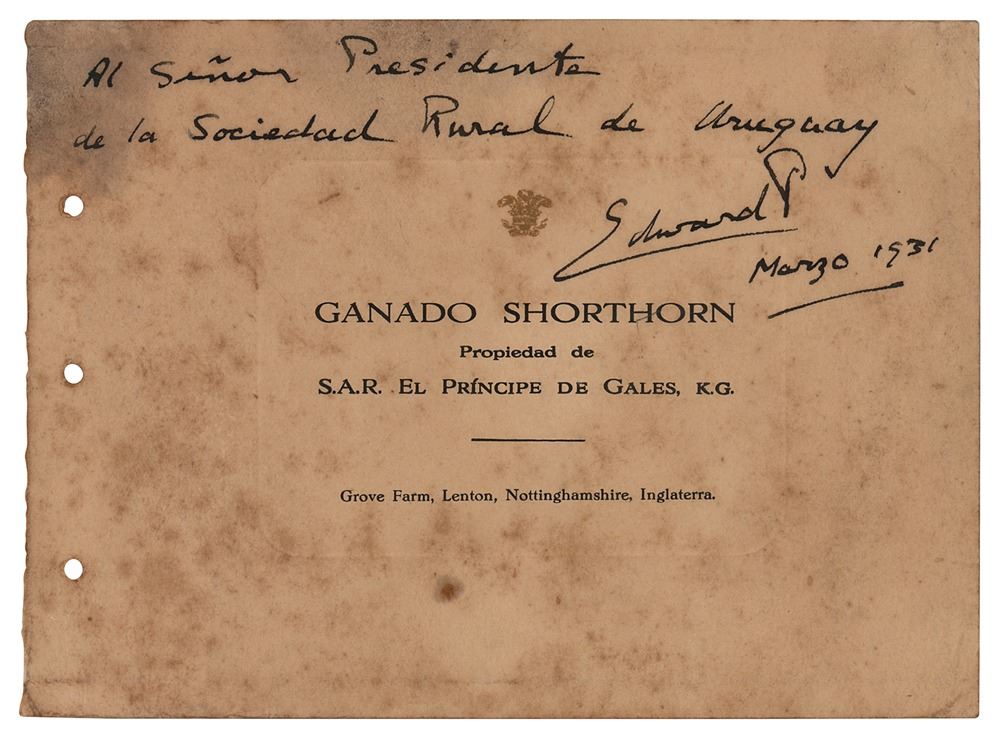 Al Señor Presidente
de la Sociedad Rural de Uruguay
Edward P
Marzo 1931
GANADO SHORTHORN
Propiedad de
S.A.R. EL PRÍNCIPE DE GALES, K.G.
Grove Farm, Lenton, Nottinghamshire, Inglaterra.